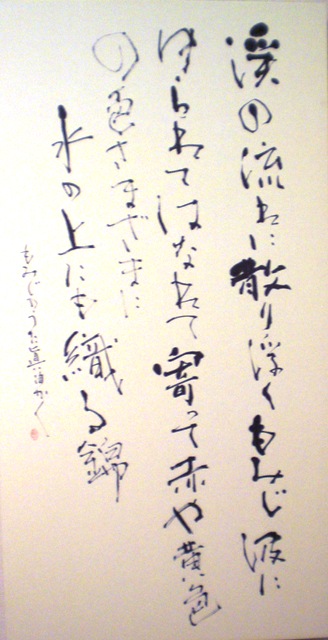 溪の流れに散り浮くもみじ波に
ゆられてはなれて寄って赤や黄色
の色さまざまに
水の上にも織る錦
もみじのうた真由かく